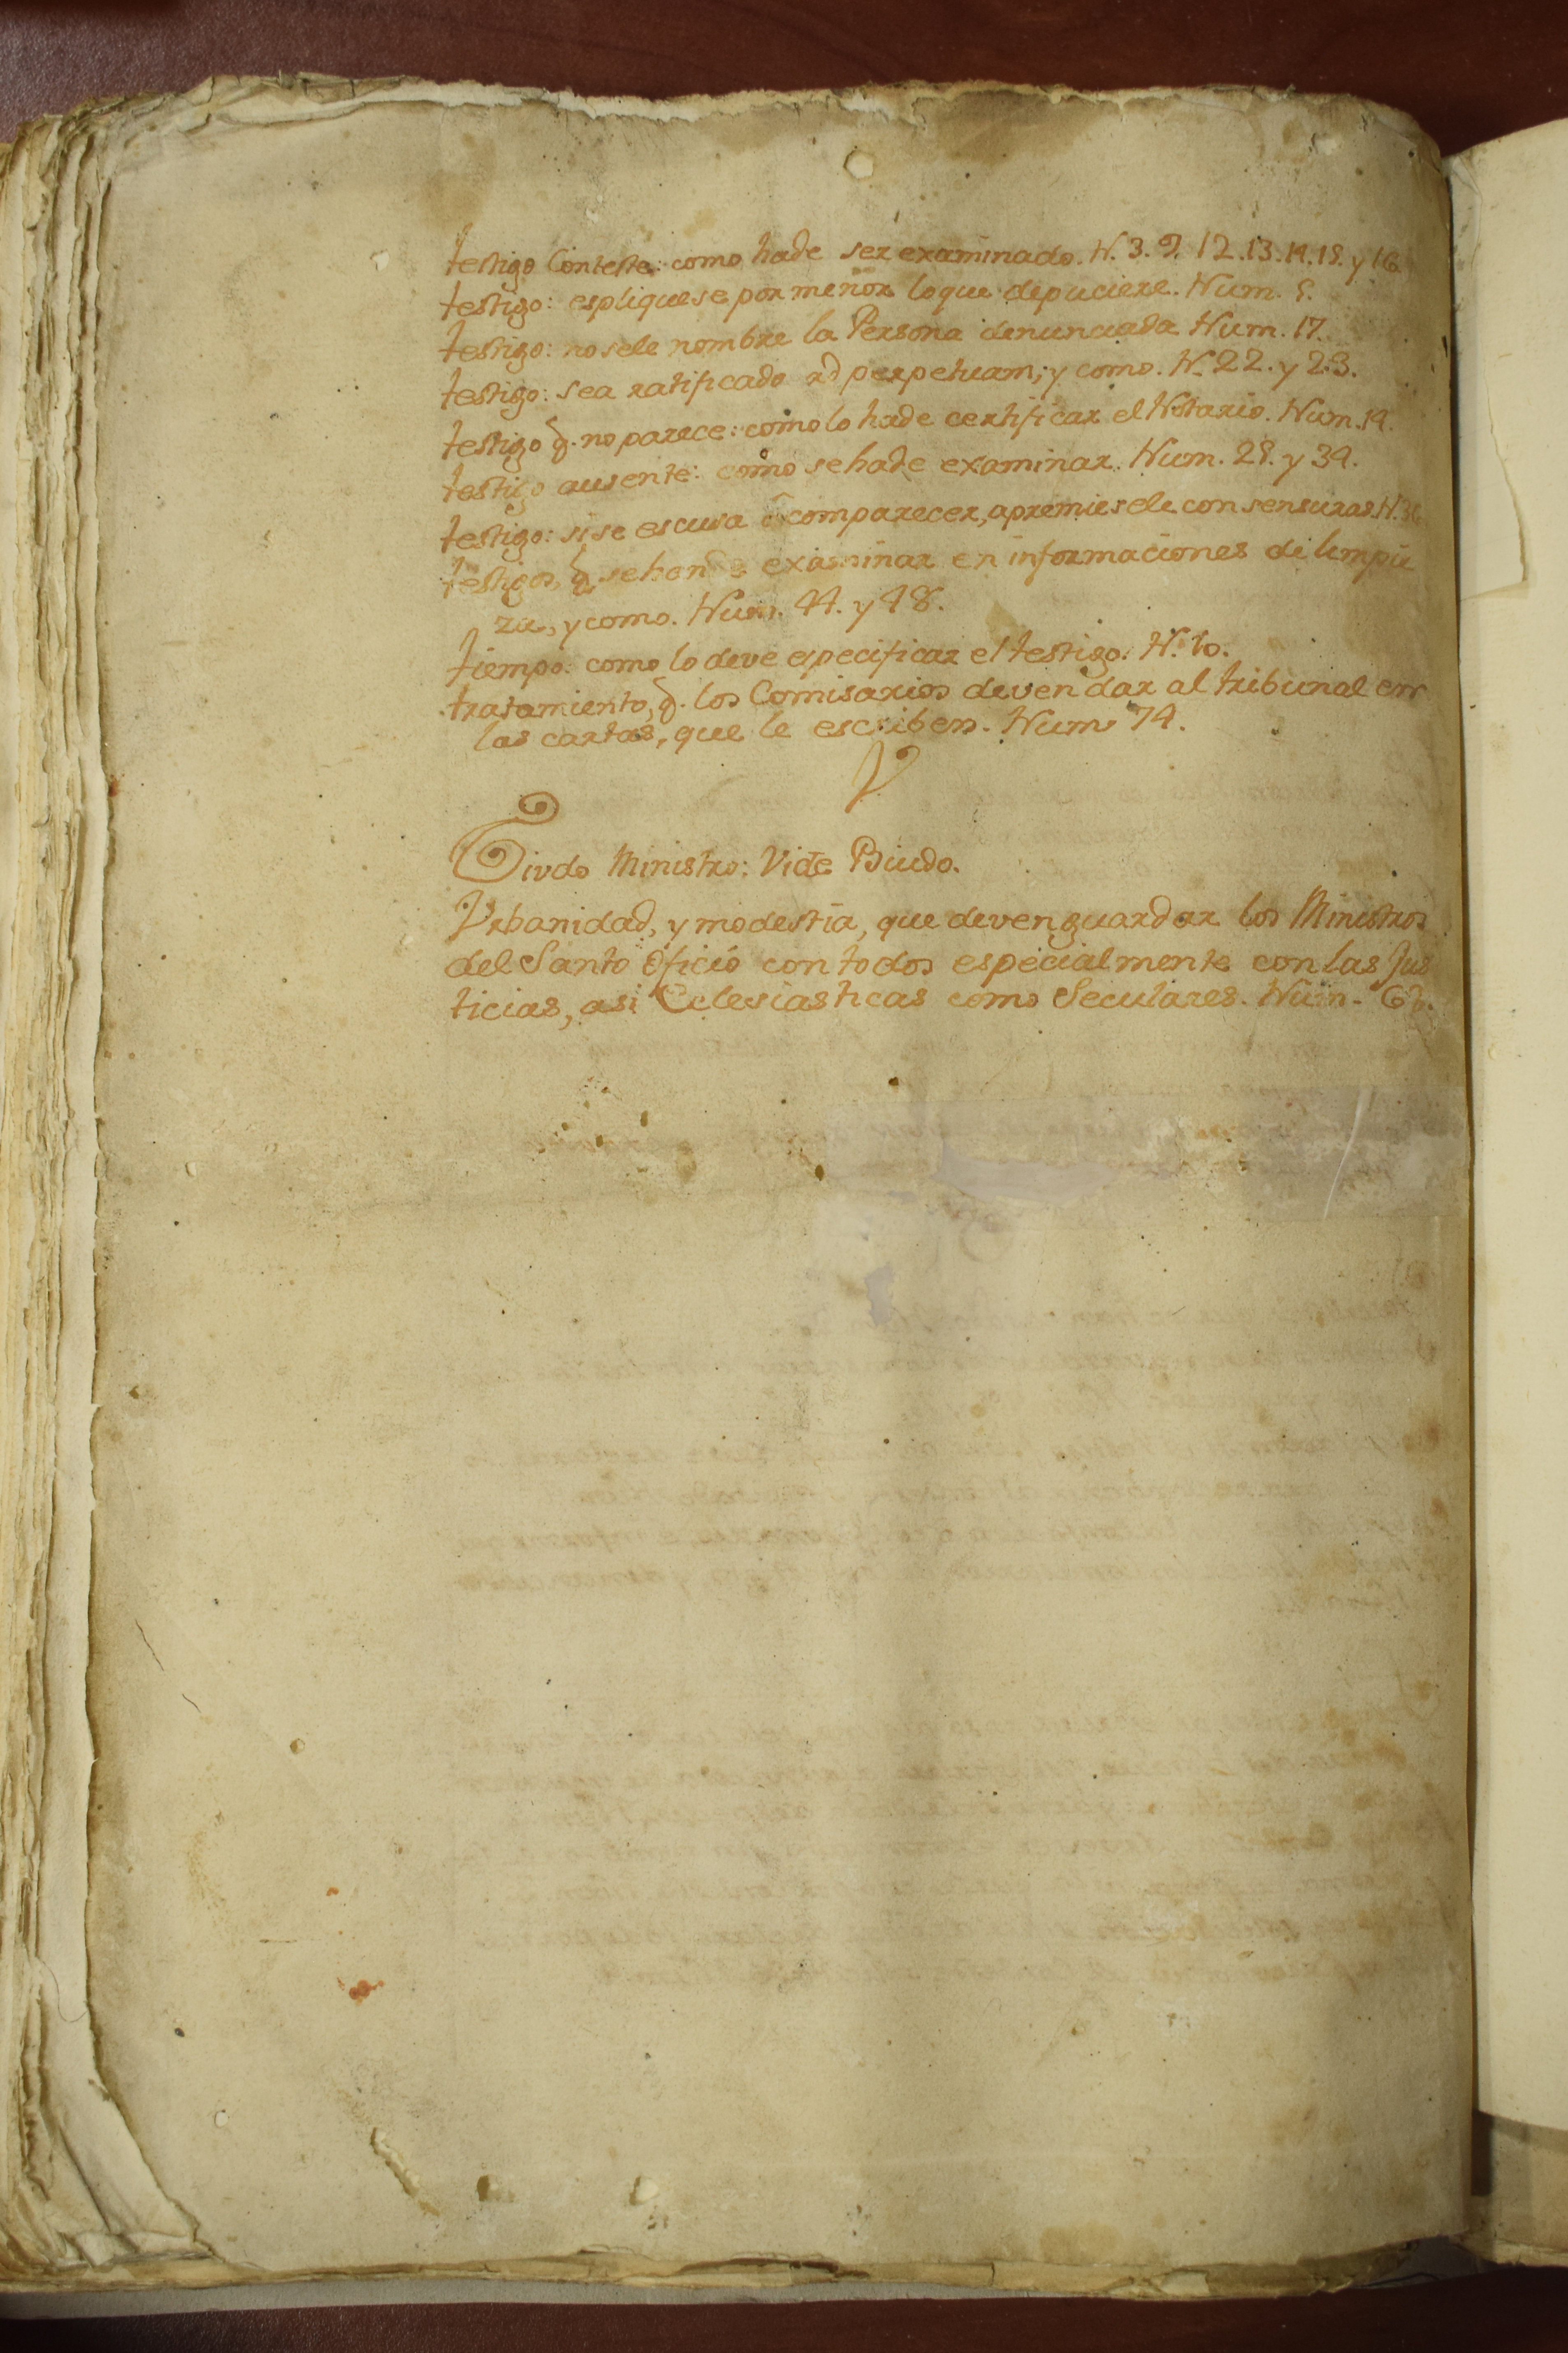 testigo Conteste: como hade ser examinado. N. 3. 9. 12. 13. 14. 18. y 16
testigo: espliquese por menor loque depuciere. Num. 5.
testigo: no sele nombre la Persona denunciada Num. 17.
testigo: sea ratificado ad perpetuam; y como. N. 22. y 23.
testigo q. no parece: como lo hade certificar el Notario. Num. 19.
testigo ausente: como sehade examinar. Num. 28. y 34.
testigo: si se escusa comparecer, apremiesele con sensuras. N.
testigos, q. sehan de examinar en informaciones de limpie
za, y como. Num. 44. y 48.
tiempo: como lo deve especificar el testigo. N. 10.
tratamiento, q. los Comisarios deven dar al tribunal en
las cartas, que le escriben. Num 74.
V
Viudo Ministro: Vide Biudo.
Vrbanidad, y modestia, que deven guardar los Ministros
del Santo Oficio con todos especialmente con las Jus
ticias, asi Eclesiasticas como Seculares. Num.